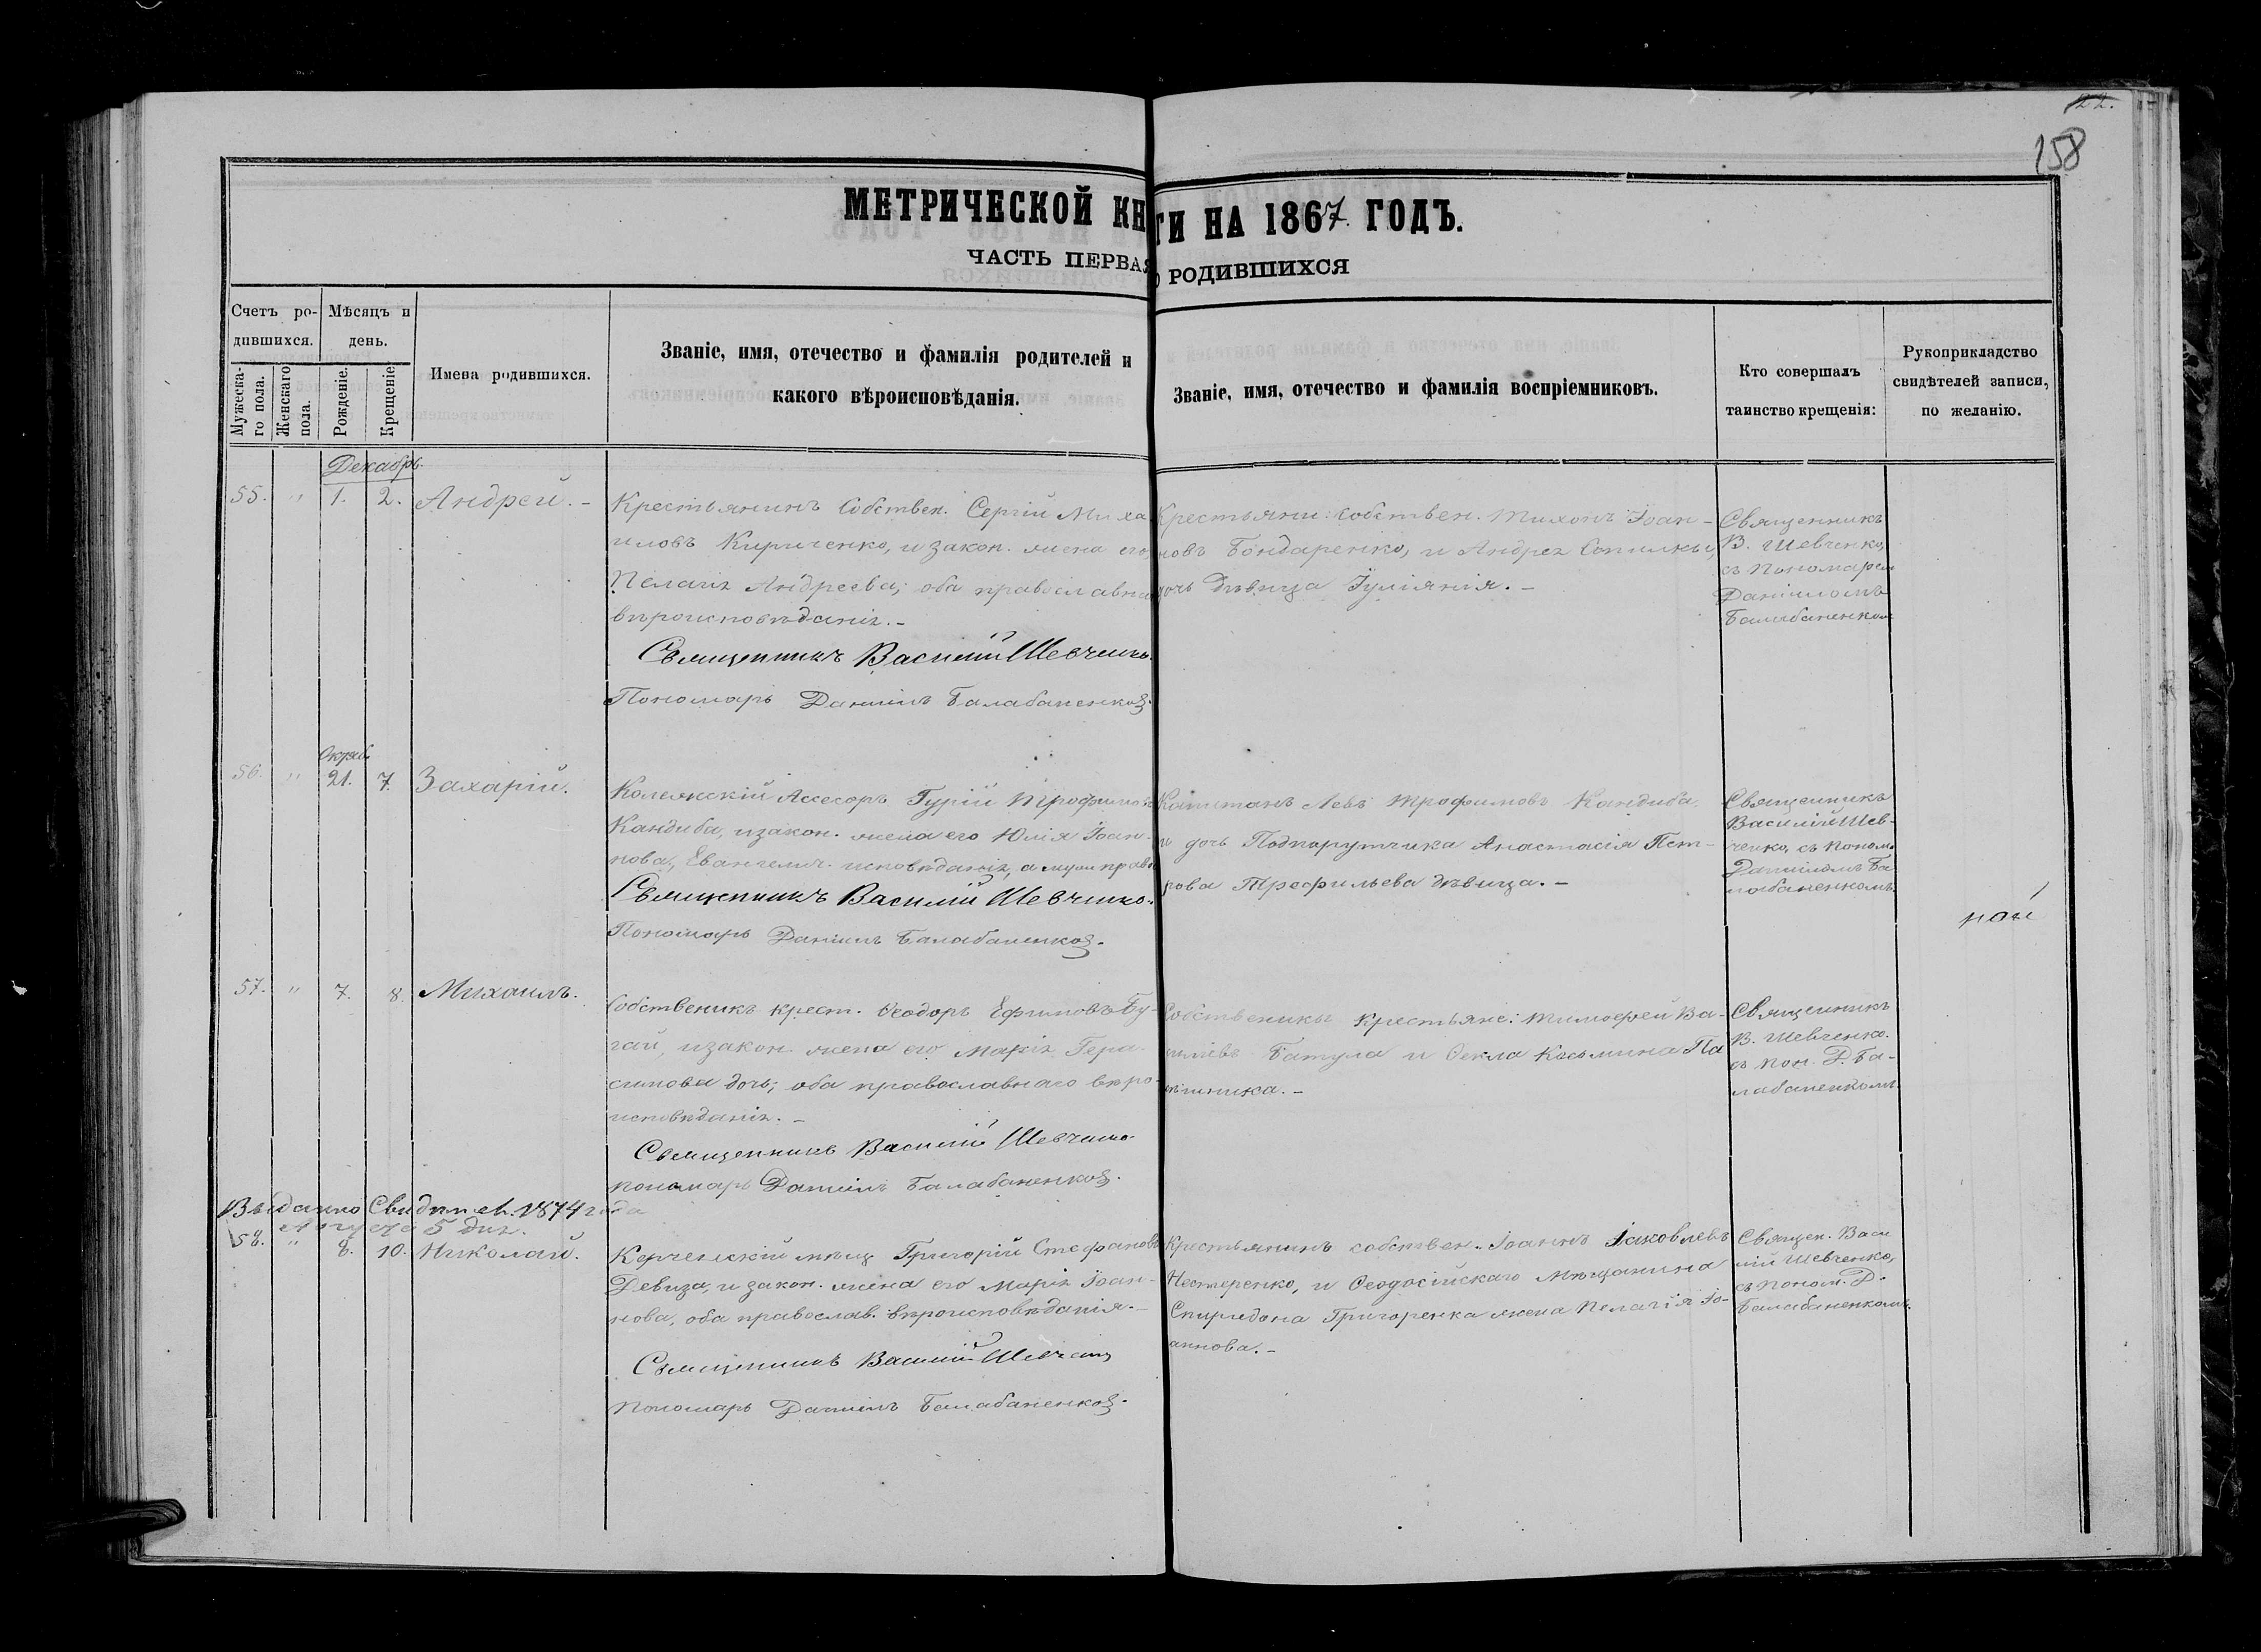 22.
158
МЕТРИЧЕСКОЙ КНИГИ НА 1867 ГОДЪ.
ЧАСТЬ ПЕРВАЯ О РОДИВШИХСЯ
Счетъ ро-
дившихся.
Мѣсяцъ и
день.
Мужеска-
го пола.
Женскаго
пола.
Рожденіе.
Крещеніе
Имена родившихся.
Званіе, имя, отечество и фамилія родителей и
какого вѣроисповѣданія.
Званіе, имя, отечество и фамилія воспріемниковъ.
Кто совершалъ
таинство крещенія:
Рукоприкладство
свидѣтелей записи,
по желанію.
Декабрь
55. " 1. 2. Андрей. -
Крестьянинъ Собствен. Сергій Миха
иловъ Кириченко, и закон. жена его,
Пелагія Андреева; оба православна
вѣроисповѣданія. -
Священникъ Василій Шевченко.
Пономарь Даніилъ Балабаненко.
Крестьяни: собствен. Тихонъ Іоан-
новъ Бондаренко, и Андрея Сопилки,
дочь Дѣвица Іуліянія. -
Священникъ
В. Шевченко,
съ Пономарем
Даніиломъ
Балабаненком
Октяб.
56. " 21. 7. Захарій.
Колежскій Асесоръ Гурій Трофимовъ
Кандиба, и закон. жена его Юлія Іоан-
нова, Евангелич. исповѣданія, а мужъ право
Священникъ Василій Шевченко.
Пономарь Даніилъ Балабаненко.
Капитанъ Левъ Трофимовъ Кандиба.
и дочь Подпорутчика Анастасія Пет-
рова Трефильева дѣвица. -
Священникъ
Василій Шев-
ченко, съ поном.
Даніиломъ Ба
лабаненкомъ.
57. " 7. 8. Михаилъ.
Собственикъ крест. Ѳеодоръ Ефимовъ Бу-
гай, и закон. жена его Марія Гера-
симова дочь; оба православнаго вѣро-
исповѣданія. -
Священникъ Василій Шевченко
пономарь Даніилъ Балабаненко.
Собственики крестьяне: Тимоѳей Ва-
силіевъ Батула и Ѳекла Косьмина Па
Священникъ
В. Шевченко.
съ пон. Д. Ба-
лабаненкомъ
Выданно Свидѣтел. 1874 года
Августа 5 дня.
58. " 8. 10. Николай.
Керченскій мѣщ Григорій Стефановъ
Девиза, и закон. жена его Марія Іоан-
нова, оба православ. вѣроисповѣданія. -
Священникъ Василій Шевченко
пономарь Даніилъ Балабаненко.
Крестьянинъ собствен. Іоаннъ Іаковлевъ
Нестеренко, и Ѳеодосійскаго Мѣщанина
Спиридона Григоренка жена Пелагія Іо-
аннова. -
Священ. Васи
лій Шевченко,
съ поном. Д.
Балабаненкомъ.